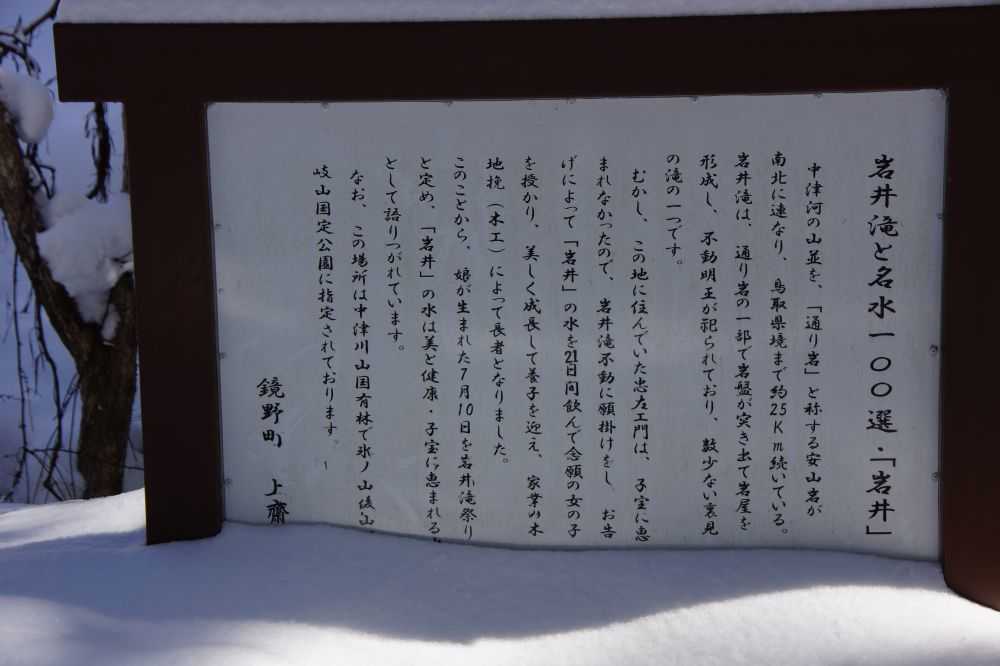 岩井滝と名水一〇〇選・「岩井」
中津河の山並を、「通り岩」と称する安山岩が
南北に連なり、鳥取県境まで約25Km続いている。
岩井滝は、通り岩の一部で岩盤が突き出て岩屋を
形成し、不動明王が祀られており、数少ない裏見
の滝の一つです。
むかし、この地に住んでいた忠左エ門は、子宝に恵
まれなかったので、岩井滝不動に願掛けをし、お告
げによって「岩井」の水を21日間飲んで念願の女の子
を授かり、美しく成長して養子を迎え、家業の木
地挽（木工）によって長者となりました。
このことから、娘が生まれた7月10日を岩井滝祭り
と定め、「岩井」の水は美と健康・子宝に恵まれる
として語りつがれています。
なお、この場所は中津川山国有林で氷ノ山後山
岐山国定公園に指定されております。
鏡野町 上齋